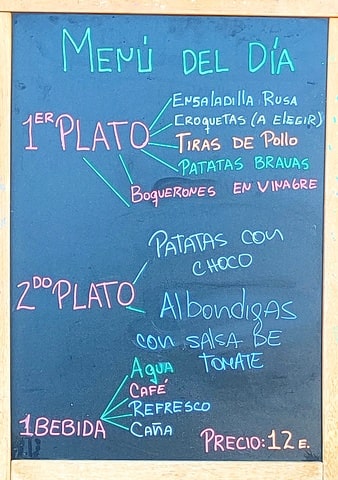 MENÚ DEL DÍA
1ER PLATO
ENSALADILLA RUSA
CROQUETAS (A ELEGIR)
TIRAS DE POLLO
PATATAS BRAVAS
BOQUERONES EN VINAGRE
2DO PLATO
PATATAS CON
CHOCO
Albondigas
con SALSA DE
TOMATE
1 BEBIDA
AGUA
CAFÉ
REFRESCO
CAÑA
PRECIO: 12 E.